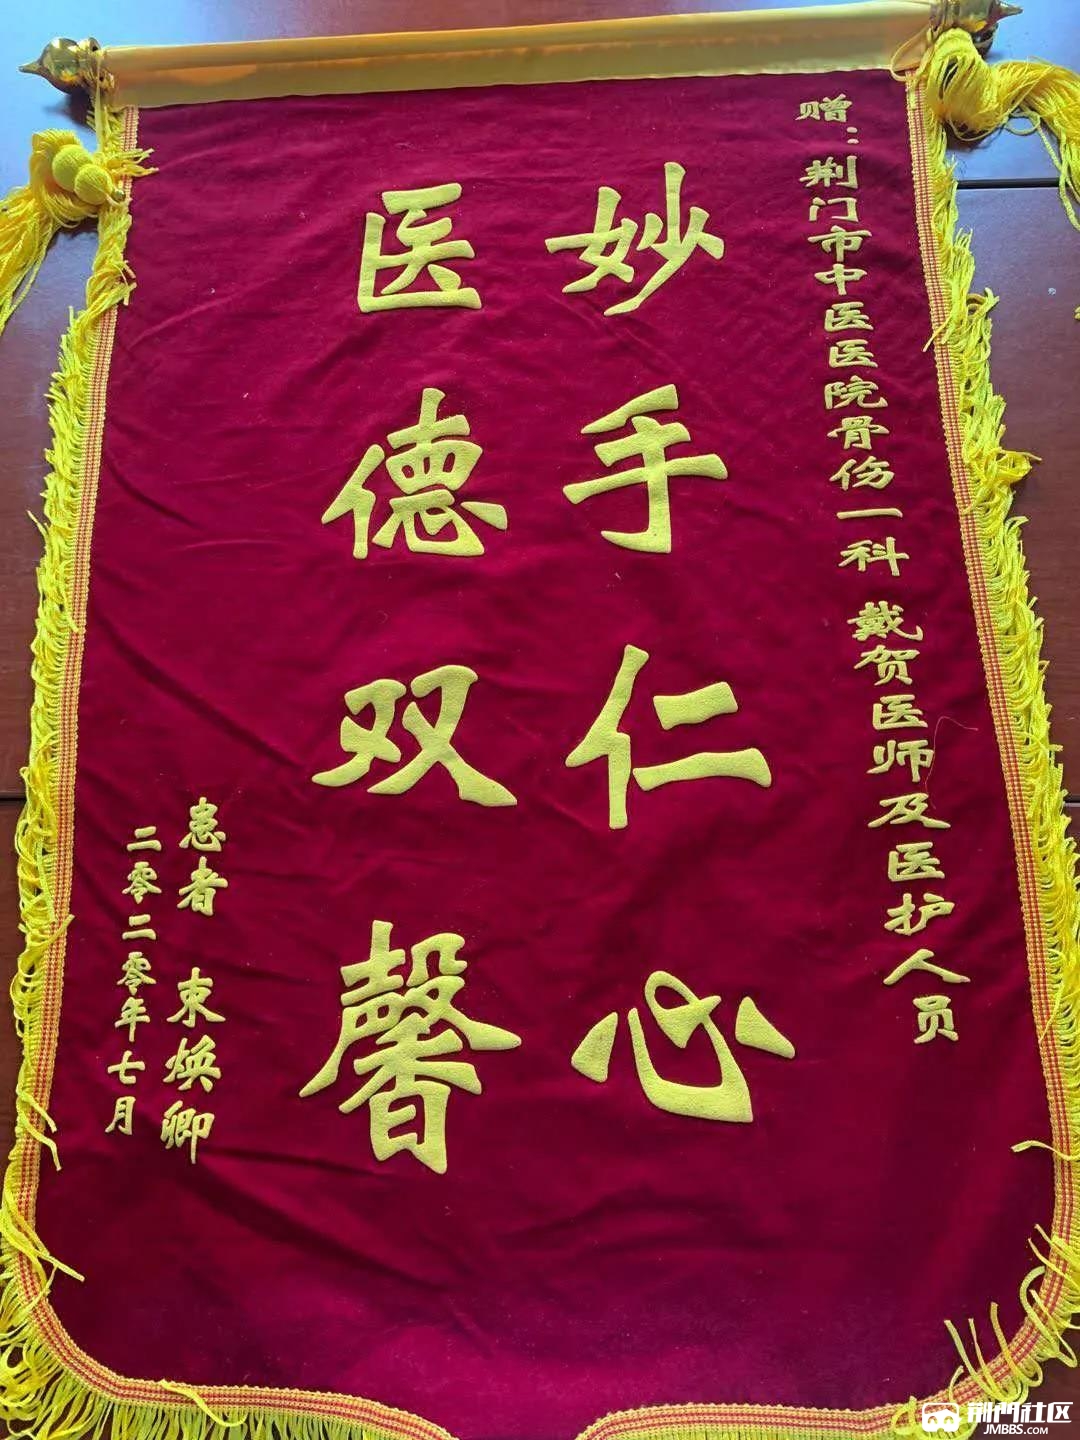 赠：荆门市中医医院骨伤一科 戴贺医师及医护人员
妙手仁心
医德双馨
患者 束焕卿
二零二零年七月
荆門社区
JMBBS.COM